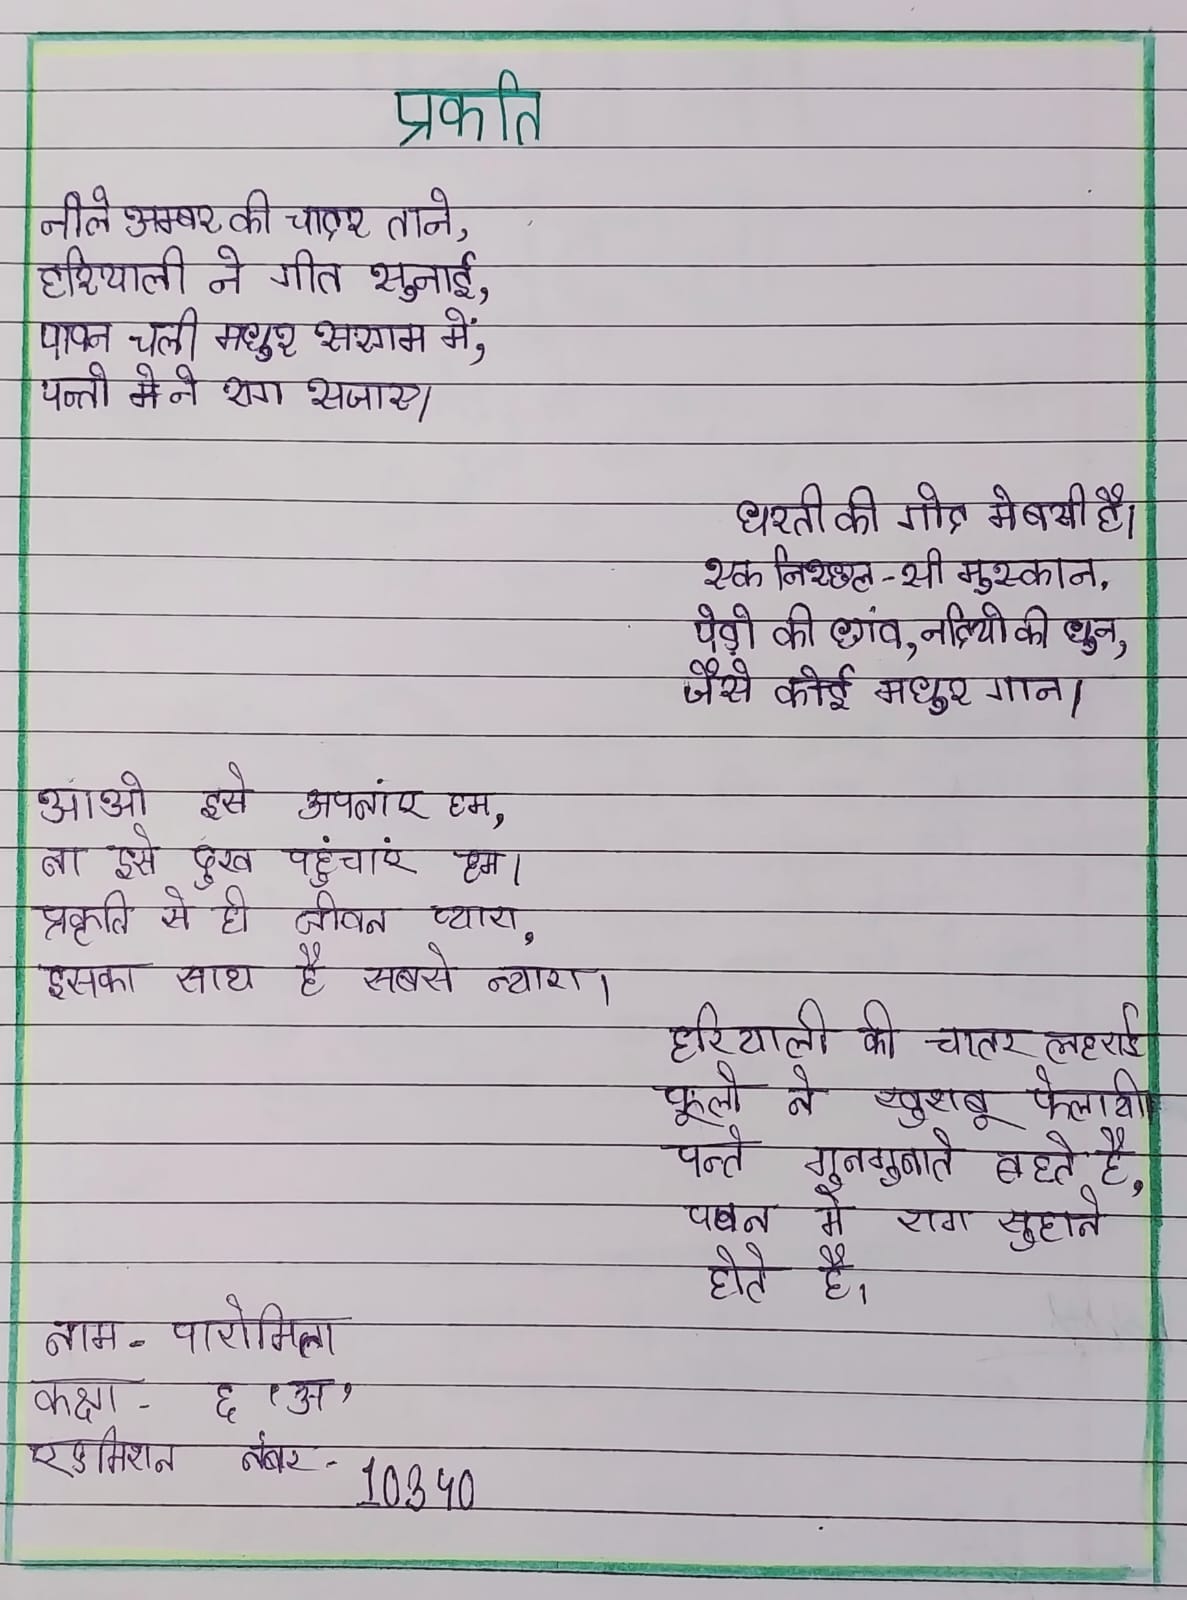 प्रकति
नीले अम्बर की चादर ताने,
हरियाली ने गीत सुनाई,
पावन चली मधुर सरगम में,
पन्तो मेने राग सजाए।
धरती की गोद मे बसी है।
एक निश्छल-सी मुस्कान,
पेड़ो की छांव, नदियो की धुन,
जैसे कोई मधुर गान।
आओ इसे अपनांए हम,
ना इसे दुख पहुंचाएं हम।
प्रकृति से ही जीवन प्यारा,
इसका साथ है सबसे न्यारा।
हरियाली की चातर लहराई
फूलो ने खुशबू फेलायी
पन्ते गुनगुनाते बहते है,
पबन में राग सुहाने
होते है।
नाम - पारोमिता
कक्षा - ६ 'अ'
एडमिशन नंबर - 10340